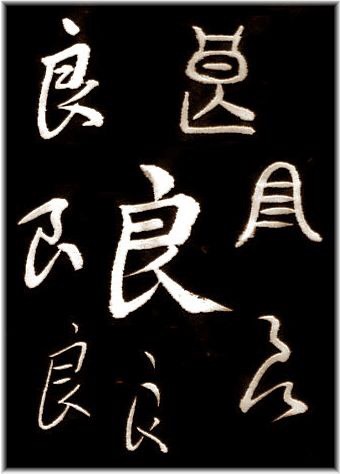 良
良
良
良
良
良
良
良